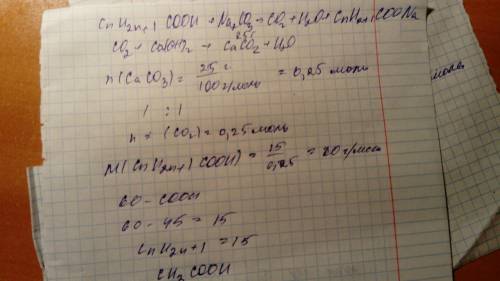 CnH2n+1 COOH + Na2CO3 → CO2 + H2O + CnH2n+1 COONa
25г
CO2 + Ca(OH)2 → CaCO2 + H2O
n(CaCO3) = 25 г / 100 г/моль = 0,25 моль
1 : 1
n = (CO2) = 0,25 моль
M(CnH2n+1 COOH) = 15 / 0,25 = 60 г/моль
60 - COOH
60 - 45 = 15
CnH2n+1 = 15
CH3 COOH
моль